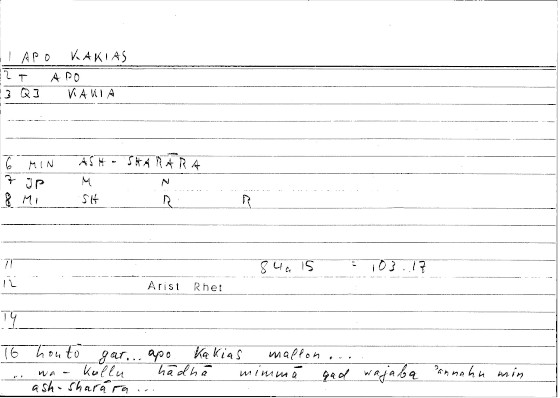 1 APO KAKIAS
2 T APO
3 QJ KAKIA
6 MIN ASH-SHARĀRA
7 JP M N
8 MI SH R R
11 84a 15 = 103.17
12 Arist Rhet
14
16 houtō gar... apo kakias mallon ....
.. wa-kullu hādhā mimmā qad wajaba 'annahu min
ash-sharāra ...